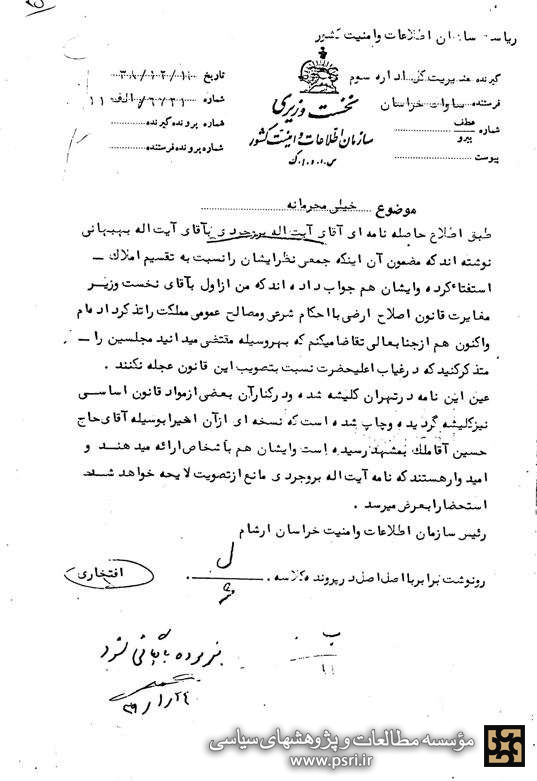 ریاست سازمان اطلاعات وامنیت کشور
گیرنده مدیریت کل اداره سوم
فرستنده ساواک خراسان
شماره عطف
پیرو
پیوست
نخست وزیری
سازمان اطلاعات و امنیت کشور
س.ا.و.ا.ک
تاریخ ۳۸/۱۲/۱۱
شماره ۱۱الف/۶۲۲۱
شماره پرونده گیرنده
شماره پرونده فرستنده
موضوع خیلی محرمانه
طبق اطلاع حاصله نامه ای آقای آیت اله بروجردی بآقای آیت اله بهبهانی
نوشته اند که مضمون آن اینکه جمعی نظر ایشان را نسبت به تقسیم املاک ــ
استفتاء کرده و ایشان هم جواب داده اند که من از اول بآقای نخست وزیر
مغایرت قانون اصلاح ارضی با احکام شرعی ومصالح عمومی مملکت را تذکر داده ام
واکنون هم از جنابعالی تقاضا میکنم که بهروسیله مقتضی میدانید مجلسین را ــ
متذکر کنید که در غیاب اعلیحضرت نسبت بتصویب این قانون عجله نکنند .
عین این نامه در تهران کلیشه شده ودر کنار آن بعضی از مواد قانون اساسی
نیز کلیشه گردیده وچاپ شده است که نسخه ای از آن اخیرا بوسیله آقای حاج
حسین آقا ملک بمشهد رسیده است وایشان هم باشخاص ارائه میدهند و
امیدوار هستند که نامه آیت اله بروجردی مانع از تصویت لایحه خواهد شد
استحضارا بعرض میرسد .
رئیس سازمان اطلاعات وامنیت خراسان ارشام
رونوشت برابر با اصل اصل در پرونده کلاسه
افتخاری
فرموده بایگانی شود
مؤسسه مطالعات و پژوهشهای سیاسی
www.psri.ir